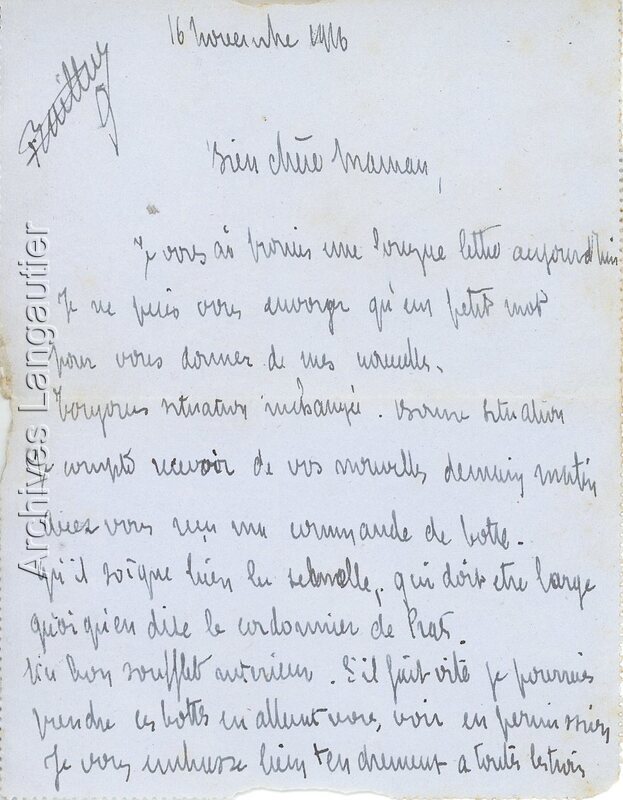 16 Novembre 1916
Bien chère Maman,
Je vous ai promis une longue lettre aujourd'hui
Je ne puis vous envoyer qu'un petit mot
pour vous donner de mes nouvelles.
Toujours situation inchangée. Bonne situation
Je compte recevoir de vos nouvelles demain matin
Avez vous reçu ma commande de botte.
Qu'il soigne bien la semelle, qui doit etre large
quoi qu'en dise le cordonnier de Prat.
Un bon soufflet interieur. S'il fait vite je pourrais
prendre ces bottes en allant vous voir en permission
Je vous embrasse bien tendrement a toutes les trois
Archives Langautier